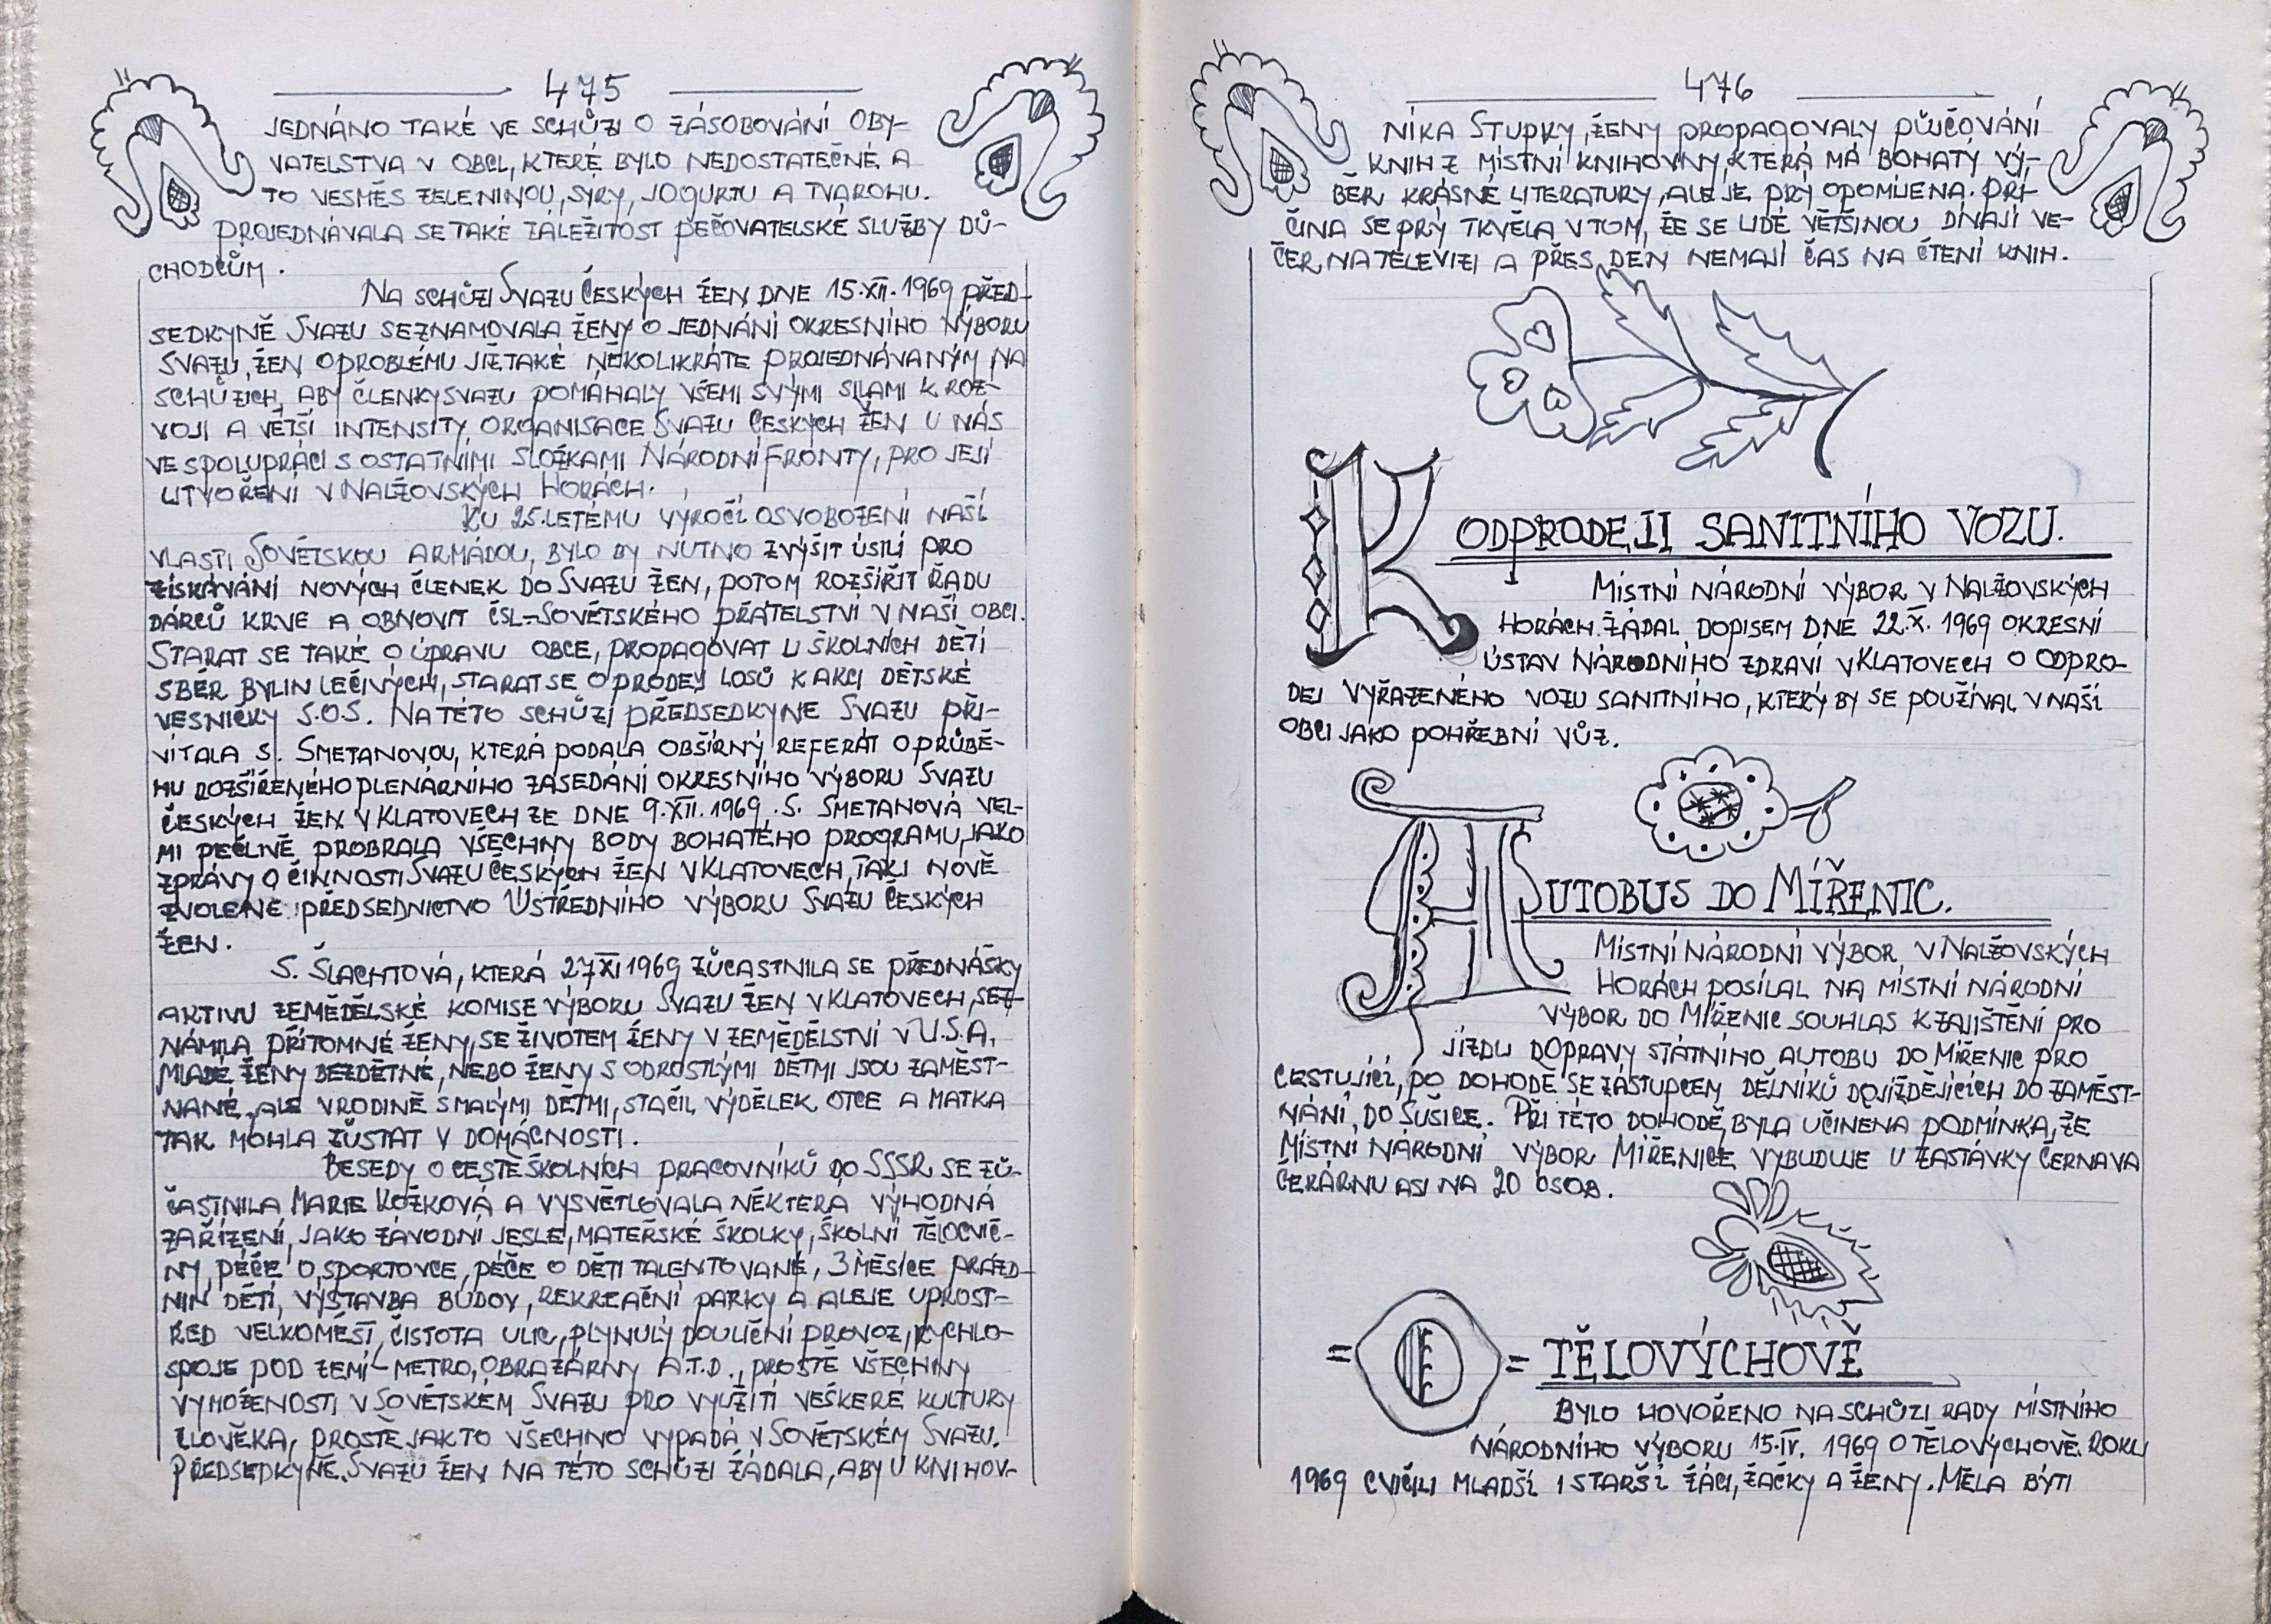 475
JEDNÁNO TAKÉ VE SCHŮZI O ZÁSOBOVÁNÍ OBY-
VATELSTVA V OBCI, KTERÉ BYLO NEDOSTATEČNÉ A
TO VESMĚS ZELENINOU, SÝRY, JOGURTU A TVAROHU.
PROJEDNÁVALA SE TAKÉ ZÁLEŽITOST PEČOVATELSKÉ SLUŽBY DŮ-
CHODCŮM.
NA SCHŮZI SVAZU ČESKÝCH ŽEN DNE 15.XII.1969 PŘED-
SEDKYNĚ SVAZU SEZNAMOVALA ŽENY O JEDNÁNÍ OKRESNÍHO VÝBORU
SVAZU, ŽEN O PROBLÉMU JIŽ TAKÉ NĚKOLIKRÁTE PROJEDNÁVANÝM NA
SCHŮZÍCH, ABY ČLENKY SVAZU POMÁHALY VŠEMI SVÝMI SILAMI K ROZ-
VOJI A VĚTŠÍ INTENSITY, ORGANISACE SVAZU ČESKÝCH ŽEN U NÁS
VE SPOLUPRÁCI S OSTATNÍMI SLOŽKAMI NÁRODNÍ FRONTY, PRO JEJÍ
UTVOŘENÍ V NALŽOVSKÝCH HORÁCH.
KU 25.LETÉMU VÝROČÍ OSVOBOZENÍ NAŠÍ
VLASTI SOVĚTSKOU ARMÁDOU, BYLO BY NUTNO ZVÝŠIT ÚSILÍ PRO
ZÍSKÁVÁNÍ NOVÝCH ČLENEK DO SVAZU ŽEN, POTOM ROZŠÍŘIT ŘADU
DÁRCŮ KRVE A OBNOVIT ČSL-SOVĚTSKÉHO PŘÁTELSTVÍ V NAŠÍ OBCI.
STARAT SE TAKÉ O ÚPRAVU OBCE, PROPAGOVAT U ŠKOLNÍCH DĚTÍ
SBĚR BYLIN LÉČIVÝCH, STARAT SE O PRODEJ LOSŮ K AKCI DĚTSKÉ
VESNIČKY S.O.S. NA TÉTO SCHŮZI PŘEDSEDKYNĚ SVAZU PŘI-
VÍTALA S. SMETANOVOU, KTERÁ PODALA OBŠÍRNÝ REFERÁT O PRŮBĚ-
HU ROZŠÍŘENÉHO PLENÁRNÍHO ZASEDÁNÍ OKRESNÍHO VÝBORU SVAZU
ČESKÝCH ŽEN V KLATOVECH ZE DNE 9.XII.1969. S. SMETANOVÁ VEL-
MI PEČLIVĚ PROBRALA VŠECHNY BODY BOHATÉHO PROGRAMU, JAKO
ZPRÁVY O ČINNOSTI SVAZU ČESKÝCH ŽEN V KLATOVECH, TAK I NOVĚ
ZVOLENÉ PŘEDSEDNICTVO ÚSTŘEDNÍHO VÝBORU SVAZU ČESKÝCH
ŽEN.
S. ŠLACHTOVÁ, KTERÁ 27.XI 1969 ZÚČASTNILA SE PŘEDNÁŠKY
AKTIVU ZEMĚDĚLSKÉ KOMISE VÝBORU SVAZU ŽEN V KLATOVECH, SEZ-
NÁMILA PŘÍTOMNÉ ŽENY, SE ŽIVOTEM ŽENY V ZEMĚDĚLSTVÍ V U.S.A.
MLADÉ ŽENY BEZDĚTNÉ, NEBO ŽENY S ODROSTLÝMI DĚTMI JSOU ZAMĚST-
NANÉ, ALE V RODINĚ S MALÝMI DĚTMI, STAČIL VÝDĚLEK OTCE A MATKA
TAK MOHLA ZŮSTAT V DOMÁCNOSTI.
BESEDY O CESTĚ ŠKOLNÍCH PRACOVNÍKŮ DO SSSR SE ZÚ-
ČASTNILA MARIE KOŽKOVÁ A VYSVĚTLOVALA NĚKTERÁ VÝHODNÁ
ZAŘÍZENÍ, JAKO ZÁVODNÍ JESLE, MATEŘSKÉ ŠKOLKY, ŠKOLNÍ TĚLOCVIČ-
NY, PÉČE O SPORTOVCE, PÉČE O DĚTI TALENTOVANÉ, 3 MĚSÍCE PRÁZD-
NIN DĚTÍ, VÝSTAVBA BUDOV, REKREAČNÍ PARKY A ALEJE UPROST-
ŘED VELKOMĚST, ČISTOTA ULIC, PLYNULÝ POULIČNÍ PROVOZ, RYCHLO-
SPOJE POD ZEMÍ - METRO, OBRAZÁRNY A.T.D., PROSTĚ VŠECHNY
VYMOŽENOSTI V SOVĚTSKÉM SVAZU PRO VYUŽITÍ VEŠKERÉ KULTURY
ČLOVĚKA, PROSTĚ JAK TO VŠECHNO VYPADÁ V SOVĚTSKÉM SVAZU.
PŘEDSEDKYNĚ SVAZU ŽEN NA TÉTO SCHŮZI ŽÁDALA, ABY U KNIHOV-
476
NÍKA STUPKY, ŽENY PROPAGOVALY PŮJČOVÁNÍ
KNIH Z MÍSTNÍ KNIHOVNY, KTERÁ MÁ BOHATÝ VÝ-
BĚR KRÁSNÉ LITERATURY, ALE JE PRÝ OPOMÍJENA. PŘÍ-
ČINA SE PRÝ TKVĚLA V TOM, ŽE SE LIDÉ VĚTŠINOU DÍVAJÍ VE-
ČER NA TELEVIZI A PŘES DEN NEMAJÍ ČAS NA ČTENÍ KNIH.
K ODPRODEJI SANITNÍHO VOZU.
MÍSTNÍ NÁRODNÍ VÝBOR V NALŽOVSKÝCH
HORÁCH ŽÁDAL DOPISEM DNE 22.X. 1969 OKRESNÍ
ÚSTAV NÁRODNÍHO ZDRAVÍ V KLATOVECH O ODPRO-
DEJ VYŘAZENÉHO VOZU SANITNÍHO, KTERÝ BY SE POUŽÍVAL V NAŠÍ
OBCI JAKO POHŘEBNÍ VŮZ.
AUTOBUS DO MÍŘENIC.
MÍSTNÍ NÁRODNÍ VÝBOR V NALŽOVSKÝCH
HORÁCH POSÍLAL NA MÍSTNÍ NÁRODNÍ
VÝBOR DO MÍŘENIC SOUHLAS K ZAJIŠTĚNÍ PRO
JÍZDU DOPRAVY STÁTNÍHO AUTOBU DO MÍŘENIC PRO
CESTUJÍCÍ, PO DOHODĚ SE ZÁSTUPCEM DĚLNÍKŮ DOJÍŽDĚJÍCÍCH DO ZAMĚST-
NÁNÍ, DO SUŠICE. PŘI TÉTO DOHODĚ, BYLA UČINENA PODMÍNKA, ŽE
MÍSTNÍ NÁRODNÍ VÝBOR MÍŘENICE VYBUDUJE U ZASTÁVKY ČERNAVA
ČEKÁRNU ASI NA 20 OSOB.
=O= TĚLOVÝCHOVĚ
BYLO HOVOŘENO NA SCHŮZI RADY MÍSTNÍHO
NÁRODNÍHO VÝBORU 15.IV. 1969 O TĚLOVÝCHOVĚ. ROKU
1969 CVIČILI MLADŠÍ I STARŠÍ ŽÁCI, ŽAČKY A ŽENY. MĚLA BÝTI